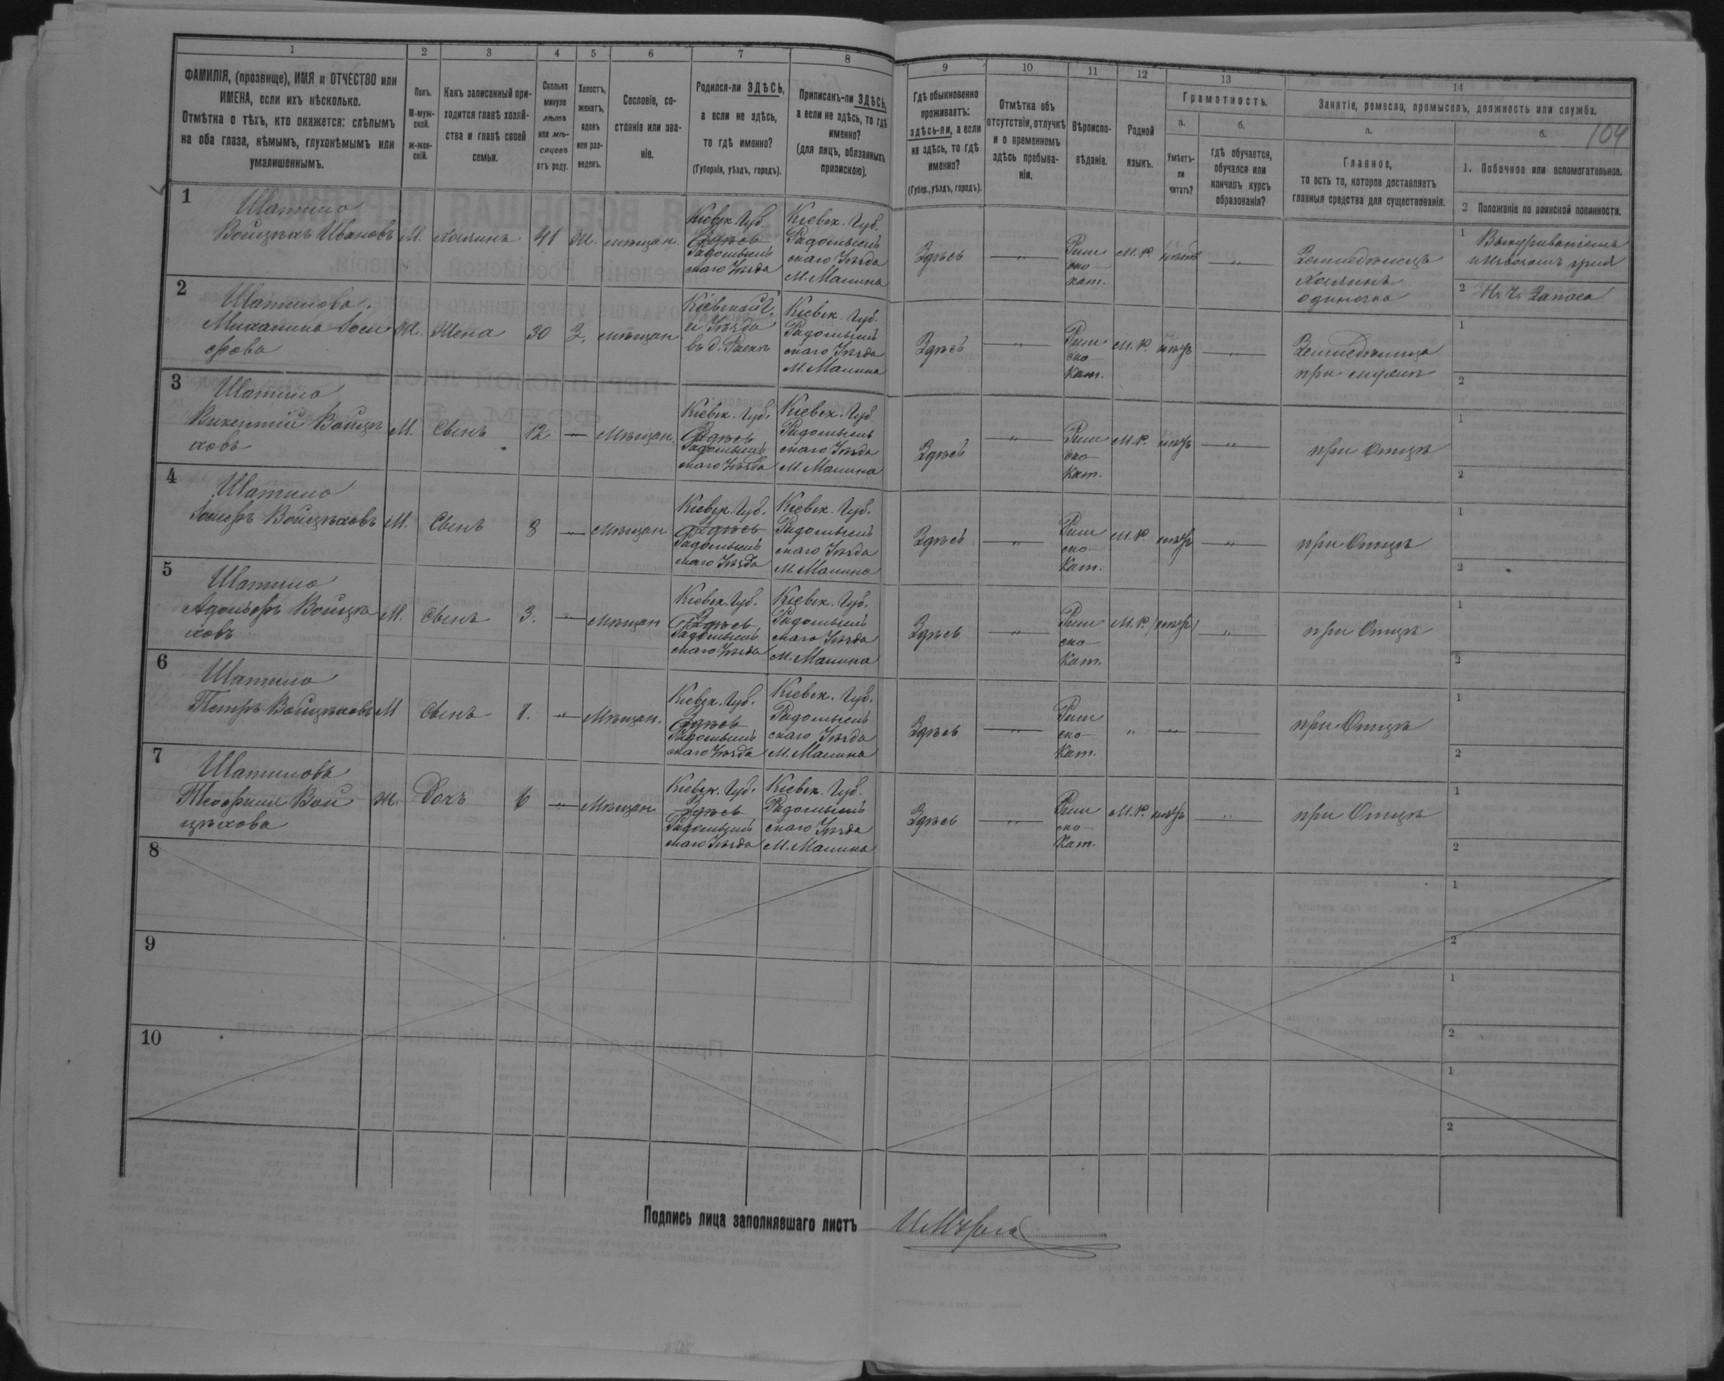 1 2 3 4 5 6 7 8
ФАМИЛІЯ, (прозвище), ИМЯ и ОТЧЕСТВО или ИМЕНА, если ихъ нѣсколько.
Отмѣтка о тѣхъ, кто окажется: слѣпымъ на оба глаза, нѣмымъ, глухонѣмымъ или умалишеннымъ.
Полъ. М-мужской. ж-женскій.
Какъ записанный приходится главѣ хозяйства и главѣ своей семьи.
Сколько минуло лѣтъ или мѣсяцевъ отъ роду.
Холостъ, женатъ, вдовъ или разведенъ.
Сословіе, состояніе или званіе.
Родился-ли ЗДѢСЬ, а если не здѣсь, то гдѣ именно?
(Губернія, уѣздъ, городъ).
Приписанъ-ли ЗДѢСЬ, а если не здѣсь, то гдѣ именно?
(для лицъ, обязанныхъ припискою).
9 10 11 12 13 14
Гдѣ обыкновенно проживаетъ: здѣсь-ли, а если не здѣсь, то гдѣ именно?
(Губер., уѣздъ, городъ).
Отмѣтка объ отсутствіи, отлучкѣ и о временномъ здѣсь пребываніи.
Вѣроисповѣданіе.
Родной языкъ.
Грамотность.
а. Умѣетъ-ли читать?
б. гдѣ обучается, обучался или кончилъ курсъ образованія?
Занятіе, ремесло, промыселъ, должность или служба.
104
а. Главное, то есть то, которое доставляетъ главныя средства для существованія.
б.
1. Побочное или вспомогательное.
2 Положеніе по воинской повинности.
1 Шатило Войцѣхъ Ивановъ М. Хозяинъ 41 Ж. мѣщан. Кіевск. Губ. Здѣсь Радомысльскаго Уѣзда Кіевск. Губ. Радомысльскаго Уѣзда М. Малина Здѣсь — „ — Римско-кат. М.Р. Земледѣлецъ хозяинъ
2 Шатилова Михалина М. Жена 30 З. мѣщан. Кіевской Г. и Уѣзда Кіевск. Губ. Радомысльскаго Уѣзда М. Малина Здѣсь — „ — Римско-Кат. М.Р. негр — „ — Земледѣлица
3 Шатило Викентій Войцѣховъ М. Сынъ 12 — Мѣщан. Кіевск. Губ. Здѣсь Радомысльскаго Уѣзда Кіевск. Губ. Радомысльскаго Уѣзда М. Малина Здѣсь — „ — Римско-Кат. М.Р. негр — „ — при Отцѣ
4 Шатило Войцѣховъ М. Сынъ 8 — мѣщан Кіевск. Губ. Здѣсь Радомысльскаго Уѣзда Кіевск. Губ. Радомысльскаго Уѣзда М. Малина Здѣсь — „ — Римско-Кат. М.Р. негр — „ — при Отцѣ
5 Шатило Адольфъ Войцѣховъ М. Сынъ 3. — Мѣщан Кіевск. Губ. Здѣсь Радомысльскаго Уѣзда Кіевск. Губ. Радомысльскаго Уѣзда М. Малина Здѣсь — „ — Римско-Кат. М.Р. негр — „ — при Отцѣ
6 Шатило Петръ Войцѣховъ М Сынъ — „ — Мѣщан. Кіевск. Губ. Здѣсь Радомысльскаго Уѣзда Кіевск. Губ. Радомысльскаго Уѣзда М. Малина Здѣсь — „ — Римско-Кат. „ — „ — при Отцѣ
7 Шатилова Теофиля Войцѣхова Ж. Дочь 6 — „ — Мѣщан. Кіевск. Губ. Здѣсь Радомысльскаго Уѣзда Кіевск. Губ. Радомысльскаго Уѣзда М. Малина Здѣсь — „ — Римско-Кат. М.Р. негр — „ — при Отцѣ
8
9
10
Подпись лица заполнявшаго листъ